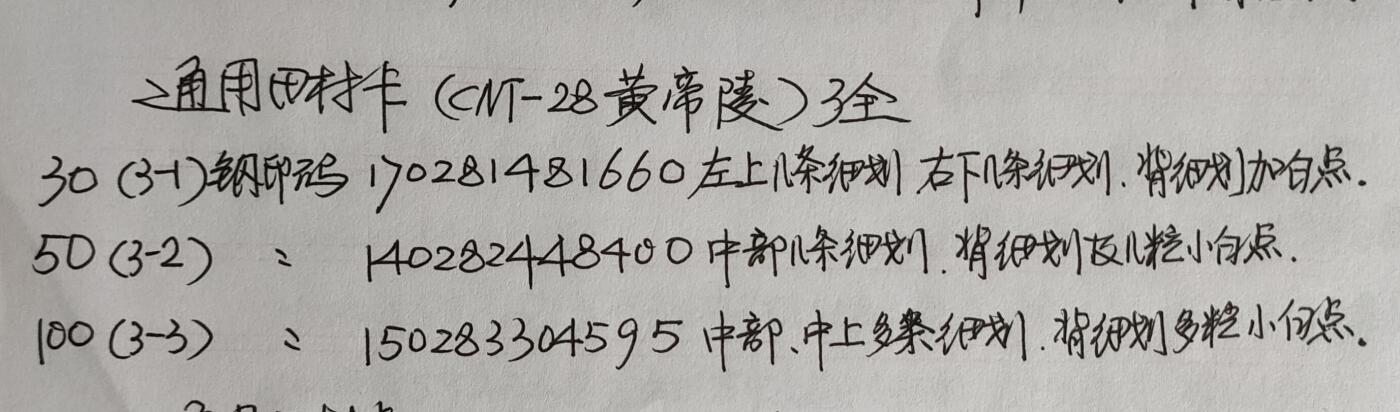 通用田村卡(CNT-28黄帝陵)3全
30(3-1)钢印码 170281481660 左上几条细划 右下几条细划.背细划加白点.
50(3-2) 〃 140282448400 中部几条细划.背细划及几粒小白点.
100(3-3) 〃 150283304595 中部、中上多条细划.背细划多粒小白点.